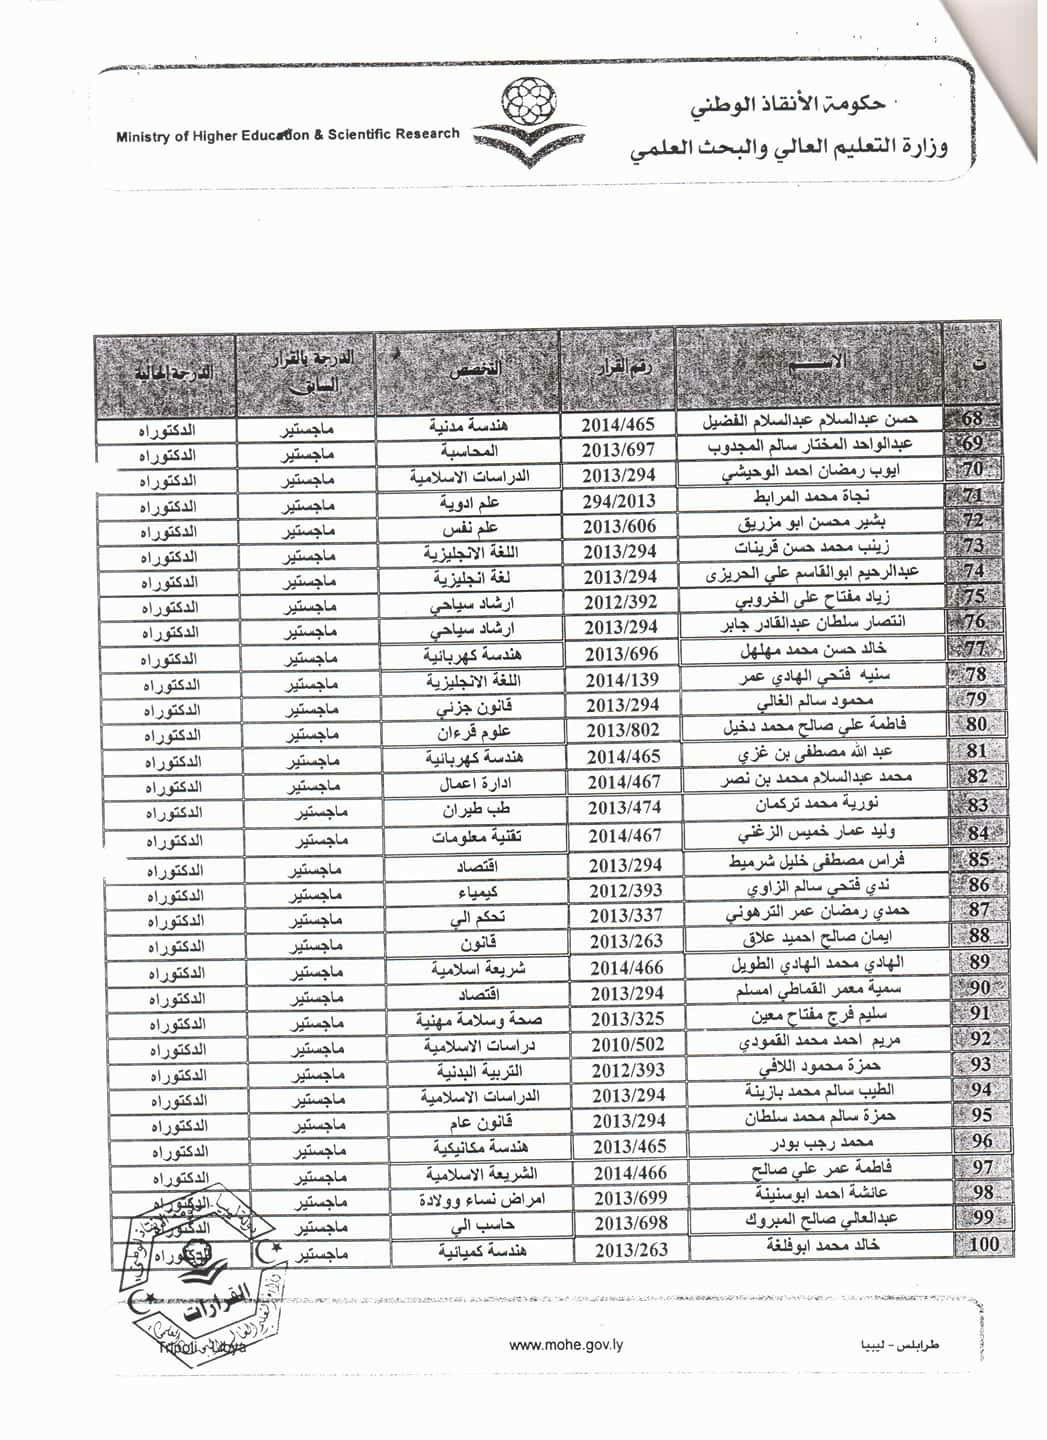 حكومة الأنقاذ الوطني
وزارة التعليم العالي والبحث العلمي
Ministry of Higher Education & Scientific Research
ت الاسم رقم القرار التخصص الدرجة بالقرار السابق الدرجة الحالية
68 حسن عبدالسلام عبدالسلام الفضيل 2014/465 هندسة مدنية ماجستير الدكتوراه
69 عبدالواحد المختار سالم المجدوب 2013/697 المحاسبة ماجستير الدكتوراه
70 ايوب رمضان احمد الوحيشي 2013/294 الدراسات الاسلامية ماجستير الدكتوراه
71 نجاة محمد المرابط 294/2013 علم ادوية ماجستير الدكتوراه
72 بشير محسن ابو مزريق 2013/606 علم نفس ماجستير الدكتوراه
73 زينب محمد حسن قرينات 2013/294 اللغة الانجليزية ماجستير الدكتوراه
74 عبدالرحيم ابوالقاسم علي الحريزى 2013/294 لغة انجليزية ماجستير الدكتوراه
75 زياد مفتاح على الخروبي 2012/392 ارشاد سياحي ماجستير الدكتوراه
76 انتصار سلطان عبدالقادر جابر 2013/294 ارشاد سياحي ماجستير الدكتوراه
77 خالد حسن محمد مهلهل 2013/696 هندسة كهربائية ماجستير الدكتوراه
78 سنيه فتحي الهادي عمر 2014/139 اللغة الانجليزية ماجستير الدكتوراه
79 محمود سالم الغالي 2013/294 قانون جزئي ماجستير الدكتوراه
80 فاطمة علي صالح محمد دخيل 2013/802 علوم قرءان ماجستير الدكتوراه
81 عبد الله مصطفى بن غزي 2014/465 هندسة كهربائية ماجستير الدكتوراه
82 محمد عبدالسلام محمد بن نصر 2014/467 ادارة اعمال ماجستير الدكتوراه
83 نورية محمد تركمان 2013/474 طب طيران ماجستير الدكتوراه
84 وليد عمار خميس الزغني 2014/467 تقنية معلومات ماجستير الدكتوراه
85 فراس مصطفى خليل شرميط 2013/294 اقتصاد ماجستير الدكتوراه
86 ندي فتحي سالم الزاوي 2012/393 كيمياء ماجستير الدكتوراه
87 حمدي رمضان عمر الترهوني 2013/337 تحكم الي ماجستير الدكتوراه
88 ايمان صالح احميد علاق 2013/263 قانون ماجستير الدكتوراه
89 الهادي محمد الهادي الطويل 2014/466 شريعة اسلامية ماجستير الدكتوراه
90 سمية معمر القماطي امسلم 2013/294 اقتصاد ماجستير الدكتوراه
91 سليم فرج مفتاح معين 2013/325 صحة وسلامة مهنية ماجستير الدكتوراه
92 مريم احمد محمد القمودي 2010/502 دراسات الاسلامية ماجستير الدكتوراه
93 حمزة محمود اللافي 2012/393 التربية البدنية ماجستير الدكتوراه
94 الطيب سالم محمد بازينة 2013/294 الدراسات الاسلامية ماجستير الدكتوراه
95 حمزة سالم محمد سلطان 2013/294 قانون عام ماجستير الدكتوراه
96 محمد رجب بودر 2013/465 هندسة مكانيكية ماجستير الدكتوراه
97 فاطمة عمر علي صالح 2014/466 الشريعة الاسلامية ماجستير الدكتوراه
98 عائشة احمد ابوسنينة 2013/699 امراض نساء وولادة ماجستير الدكتوراه
99 عبدالعالي صالح المبروك 2013/698 حاسب الي ماجستير الدكتوراه
100 خالد محمد ابوفلغة 2013/263 هندسة كميائية ماجستير الدكتوراه
القرارات
طرابلس - ليبيا
www.mohe.gov.ly
Tripoli - Libya